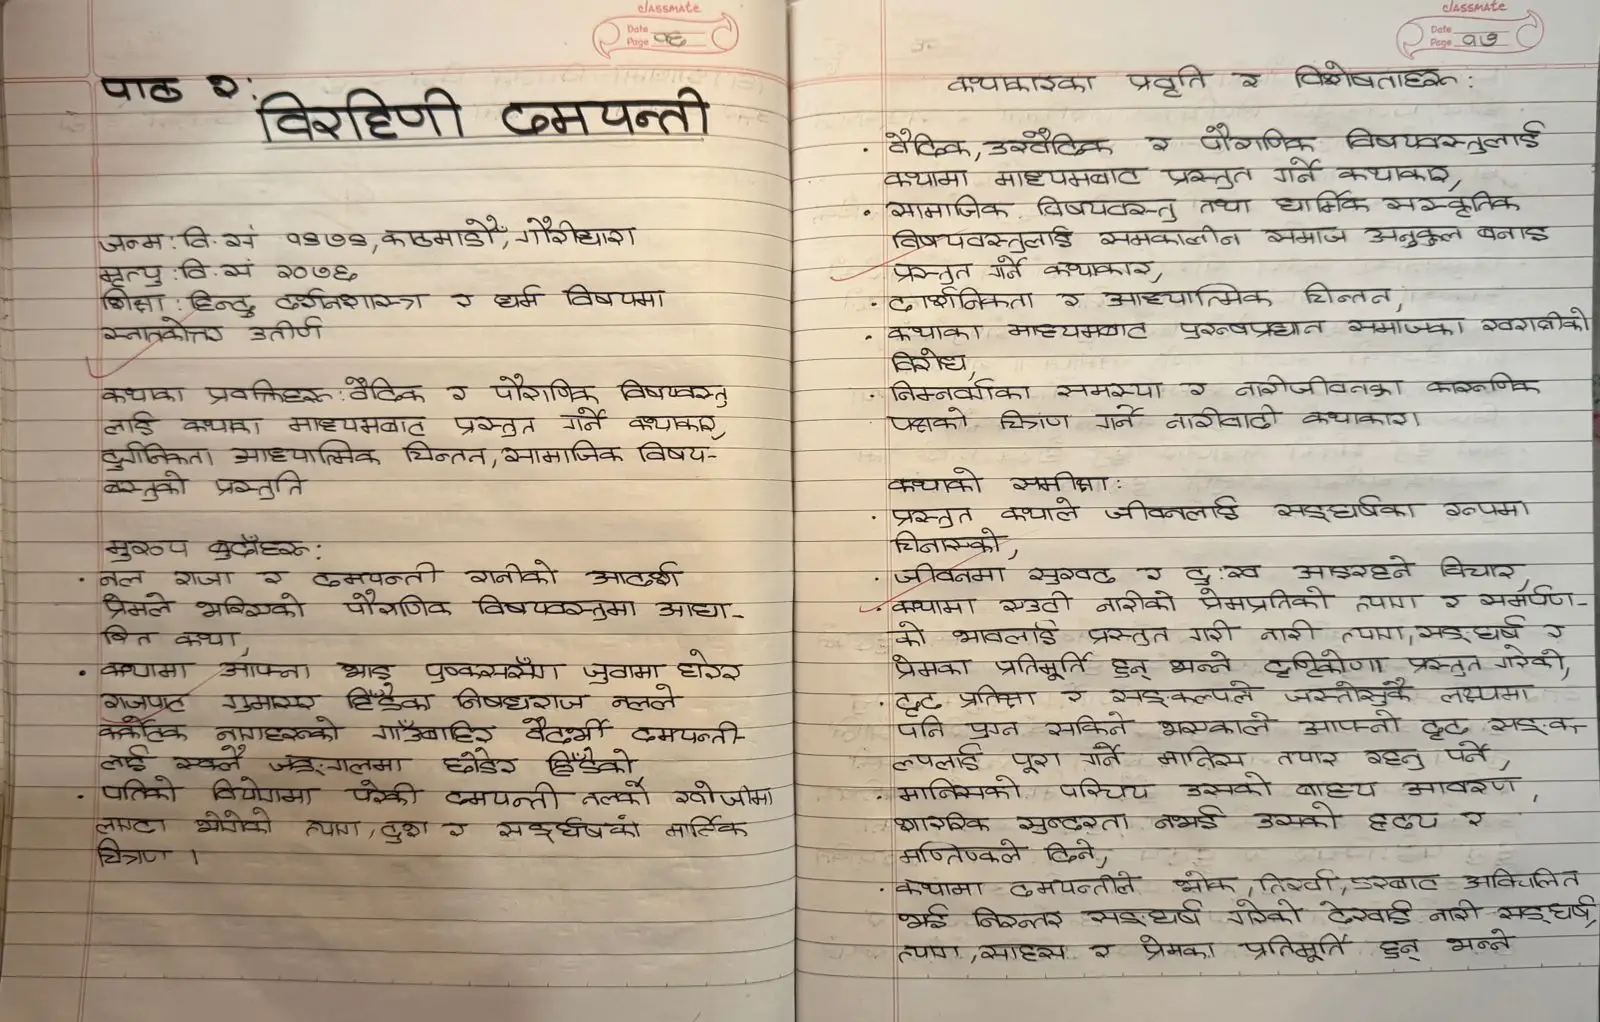 classmate
Date
Page १६
पाठ २:
विरहिणी दमयन्ती
जन्म : वि. सं १९७९, काठमाडौँ, गौरीधारा
मृत्यु : वि. सं २०७६
शिक्षा : हिन्दु दर्शनशास्त्र र धर्म विषयमा
स्नातकोत्तर उतीर्ण
कथाका प्रवृत्तिहरू : वैदिक र पौराणिक विषयवस्तु
लाई कथाका माध्यमबाट प्रस्तुत गर्ने कथाकार,
आध्यात्मिक चिन्तन, सामाजिक विषय-
वस्तुको प्रस्तुति
मुख्य बुदाँहरू :
· नल राजा र दमयन्ती रानीको आदर्श
प्रेमले भरिएको पौराणिक विषयवस्तुमा आधा-
रित कथा,
· कथामा आफ्ना भाइ पुष्करसँग जुवामा हारेर
राजपाट गुमाएर हिँडेका निषधराज नलले
कर्कोटक नागहरूको गाउँबाहिर वैदर्भी दमयन्ती-
लाई एक्लै जङ्गलमा छोडेर हिँडेको
· पतिको वियोगमा परेकी दमयन्ती नलको खोजीमा
लाग्दा भोगेको त्याग, दुःख र सङ्घर्षको मार्मिक
चित्रण ।
classmate
Date
Page १७
कथाकारका प्रवृति र विशेषताहरू :
· वैदिक, उत्तरवैदिक र पौराणिक विषयवस्तुलाई
कथामा माध्यमबाट प्रस्तुत गर्ने कथाकार,
· सामाजिक विषयवस्तु तथा धार्मिक सांस्कृतिक
विषयवस्तुलाई समकालीन समाज अनुकुल बनाइ
प्रस्तुत गर्ने कथाकार,
· दार्शनिकता र आध्यात्मिक चिन्तन,
· कथाका माध्यमबाट पुरुषप्रधान समाजका खराबीको
विरोध,
· निम्नवर्गका समस्या र नारीजीवनका कारुणिक
पक्षको चित्रण गर्ने नारीवादी कथाकार।
कथाको समीक्षा :
· प्रस्तुत कथाले जीवनलाई सङ्घर्षका रूपमा
चिनाएको,
· जीवनमा सुखद र दुःख आइरहने विचार,
· कथामा एउटी नारीको प्रेमप्रतिको त्याग र समर्पण-
को भावलाई प्रस्तुत गरी नारी त्याग, सङ्घर्ष र
प्रेमका प्रतिमूर्ति हुन् भन्ने दृष्टिकोण प्रस्तुत गरेको,
· दृढ प्रतिज्ञा र सङ्कल्पले जस्तोसुकै लक्ष्यमा
पनि पुग्न सकिने भएकाले आफ्नो दृढ सङ्क-
ल्पलाई पूरा गर्ने मानिस तयार रहनु पर्ने,
· मानिसको परिचय उसको बाह्य आवरण,
शारीरिक सुन्दरता नभई उसको हृदय र
मष्तिष्कले दिने,
· कथामा दमयन्तीले भोक, तिर्खा, डरबाट अविचलित
भई निरन्तर सङ्घर्ष गरेको देखाई नारी सङ्घर्ष,
त्याग, साहस र प्रेमका प्रतिमूर्ति हुन् भन्ने